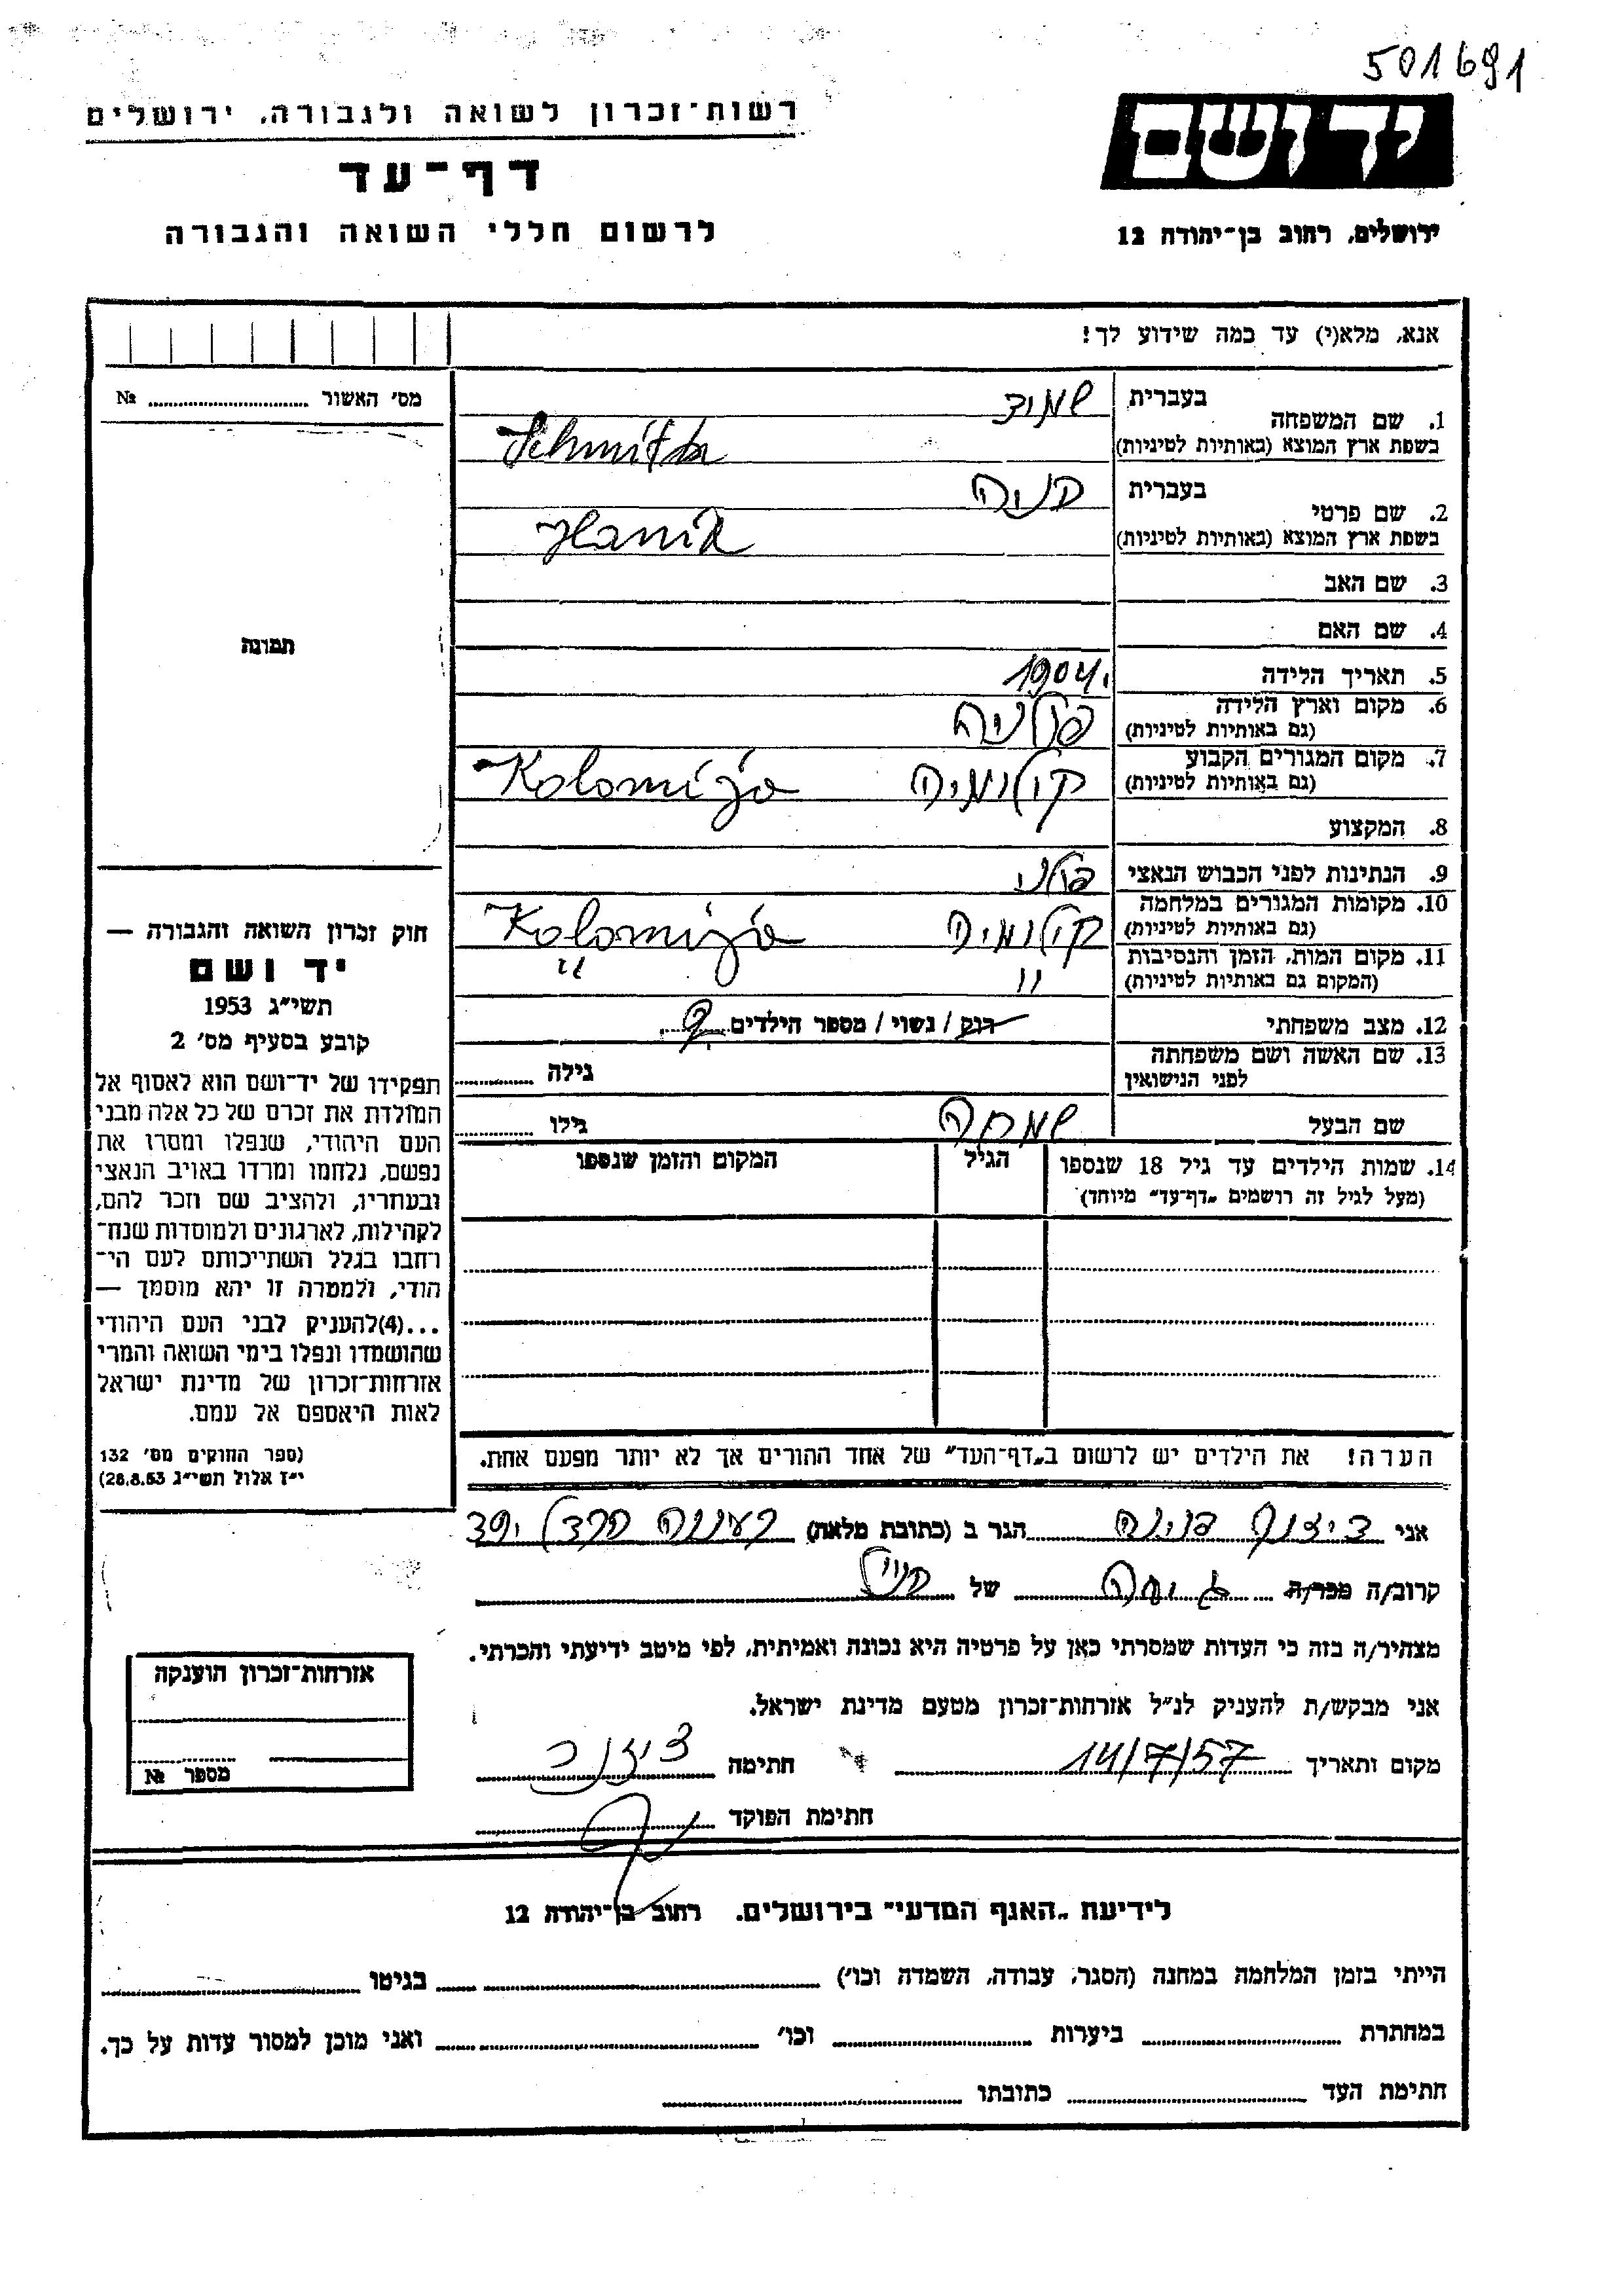 501691
ידושם
ירושלים, רחוב בן־יהודה 12
רשות־זכרון לשואה ולגבורה, ירושלים
דף־עד
לרשום חללי השואה והגבורה
אנא, מלא(י) עד כמה שידוע לך!
מס׳ האשור ........ №
1. שם המשפחה
בעברית
בשפת ארץ המוצא (באותיות לטיניות)
2. שם פרטי
בעברית
בשפת ארץ המוצא (באותיות לטיניות)
Hania
3. שם האב
4. שם האם
5. תאריך הלידה 1904.
6. מקום וארץ הלידה
(גם באותיות לטיניות) פולניה
7. מקום המגורים הקבוע
(גם באותיות לטיניות) קולומיה Kolomija
8. המקצוע
9. הנתינות לפני הכבוש הנאצי פולני
10. מקומות המגורים במלחמה
(גם באותיות לטיניות) קולומיה Kolomija
11. מקום המות, הזמן והנסיבות
(המקום גם באותיות לטיניות) " "
12. מצב משפחתי רוק / נשוי / מספר הילדים
13. שם האשה ושם משפחתה
לפני הנישואין
גילה
שם הבעל שמחה גילו
14. שמות הילדים עד גיל 18 שנספו
(מעל לגיל זה רושמים „דף־עד" מיוחד)
הגיל
המקום והזמן שנספו
הערה! את הילדים יש לרשום ב„דף־העד" של אחד ההורים אך לא יותר מפעם אחת.
תמונה
חוק זכרון השואה והגבורה —
יד ושם
תשי״ג 1953
קובע בסעיף מס׳ 2
תפקידו של יד־ושם הוא לאסוף אל
המולדת את זכרם של כל אלה מבני
העם היהודי, שנפלו ומסרו את
נפשם, נלחמו ומרדו באויב הנאצי
ובעוזריו, ולהציב שם וזכר להם,
לקהילות, לארגונים ולמוסדות שנח־
רחבו בגלל השתייכותם לעם הי־
הודי, ולמטרה זו יהא מוסמך —
...(4)להעניק לבני העם היהודי
שהושמדו ונפלו בימי השואה והמרי
אזרחות־זכרון של מדינת ישראל
לאות היאספם אל עמם.
(ספר החוקים מס׳ 132
י״ז אלול תשי״ג 28.8.53)
אני הגר ב (כתובת מלאה) רעננה
קרוב/ה מכר/ה גיסה של
מצהיר/ה בזה כי העדות שמסרתי כאן על פרטיה היא נכונה ואמיתית, לפי מיטב ידיעתי והכרתי.
אני מבקש/ת להעניק לנ״ל אזרחות־זכרון מטעם מדינת ישראל.
מקום ותאריך 14/7/57 חתימה
חתימת הפוקד
אזרחות־זכרון הוענקה
מספר №
לידיעת „האגף המדעי" בירושלים, רחוב בן־יהודה 12
הייתי בזמן המלחמה במחנה (הסגר, עבודה, השמדה וכו׳) בגיטו
במחתרת ביערות וכו׳ ואני מוכן למסור עדות על כך.
חתימת העד כתובתו